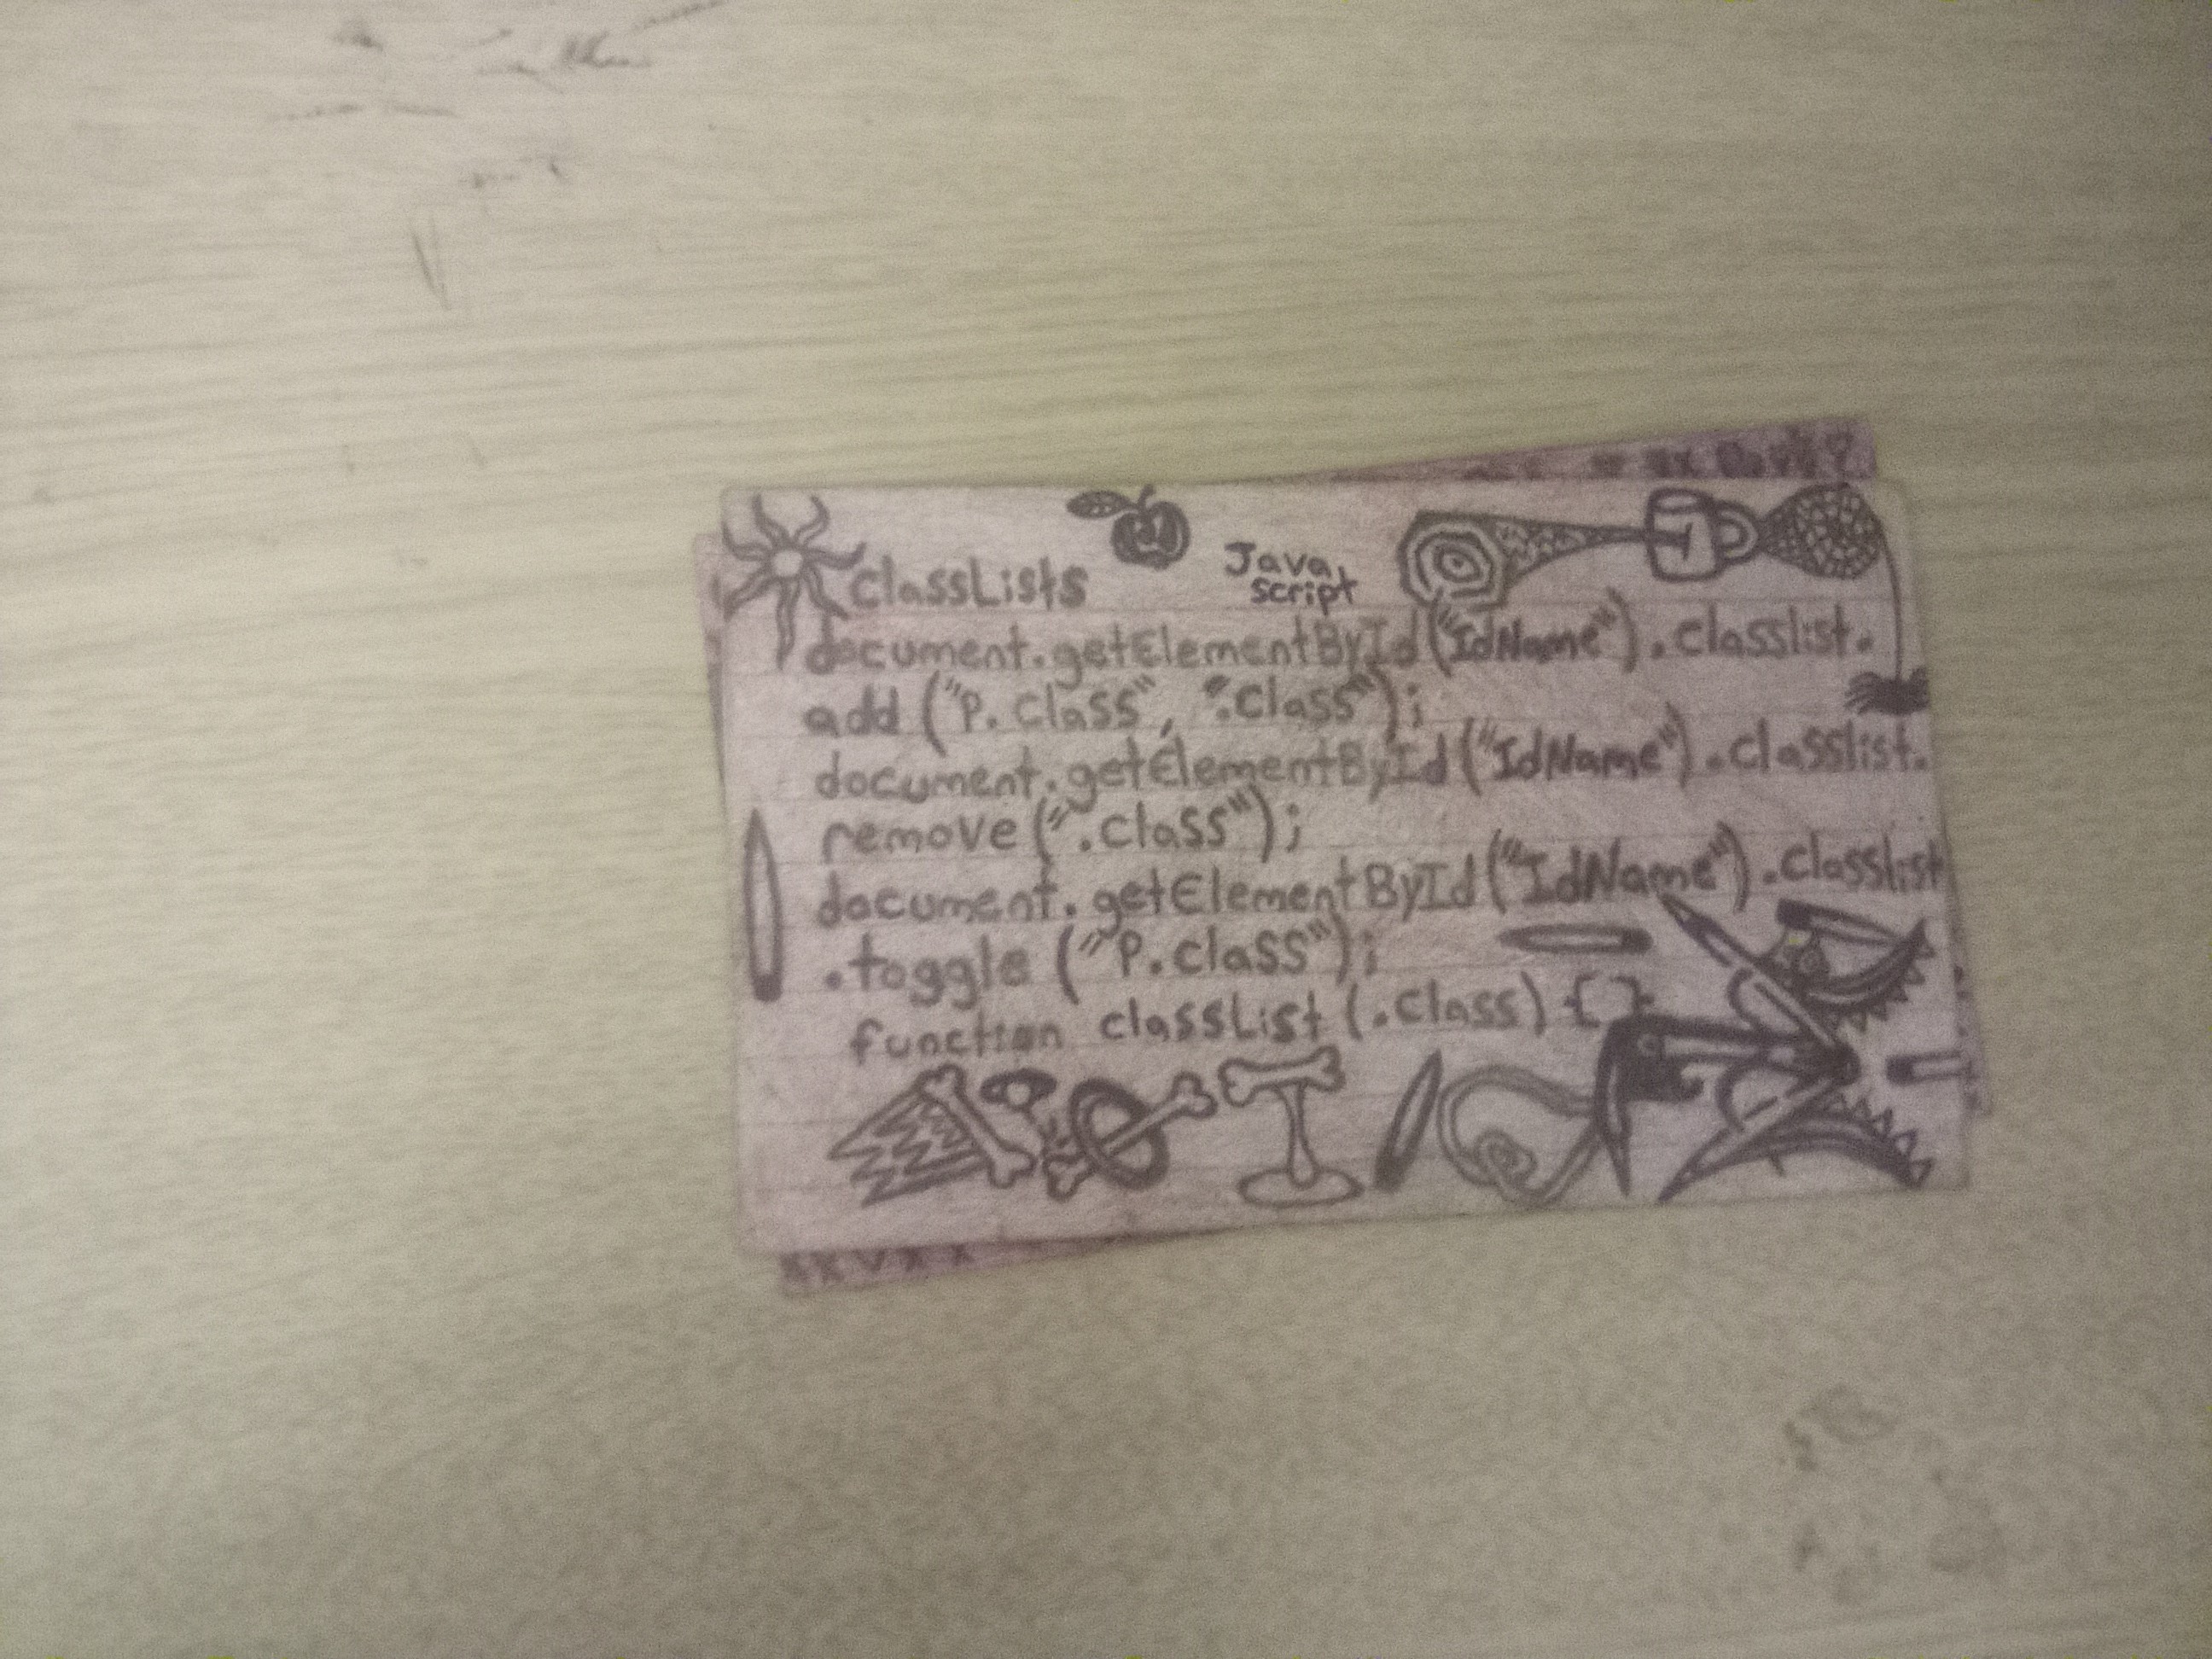 classLists
Java
script
document.getElementById("IdName").classlist.
add ("P.class", ".class");
document.getElementById("IdName").classlist.
remove(".class");
document.getElementById("IdName").classlist
.toggle ("P.class");
function classList (.class) { }